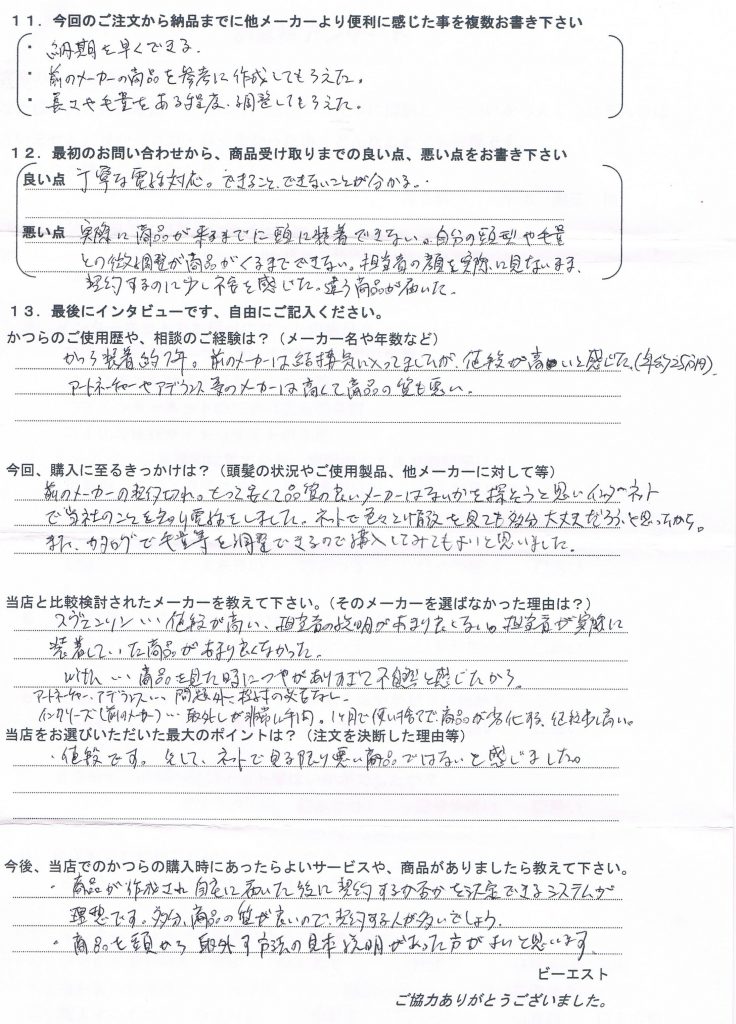 １１．今回のご注文から納品までに他メーカーより便利に感じた事を複数お書き下さい
・納期を早くできる.
・前のメーカーの商品を参考に作成してもらえた。
・長さや毛量をある程度、調整してもらえた。
１２．最初のお問い合わせから、商品受け取りまでの良い点、悪い点をお書き下さい
良い点 丁寧な電話対応。できること、できないことが分かる。
悪い点 実際に商品が来るまでに頭に装着できない。自分の頭型や毛量
との微調整が商品がくるまでできない。担当者の顔を実際に見ないまま、
契約するのに少し不安を感じた。違う商品が届いた。
１３．最後にインタビューです、自由にご記入ください。
かつらのご使用歴や、相談のご経験は？（メーカー名や年数など）
かつら装着約7年。前のメーカーは結構気に入ってましたが、値段が高いと感じた。(年約25万円)
アートネーチャーやアデランス等のメーカーは高くて商品の質も悪い。
今回、購入に至るきっかけは？（頭髪の状況やご使用製品、他メーカーに対して等）
前のメーカーの契約切れ。もっと安くて品質の良いメーカーはないかを探そうと思いインターネット
で当社のことを知り電話をしました。ネットで色々と情報を見ても多分大丈夫だろうと思ったから。
また、カタログで毛量等を調整できるので購入してみてもよいと思いました。
当店と比較検討されたメーカーを教えて下さい。（そのメーカーを選ばなかった理由は？）
スヴェンソン…値段が高い、担当者の説明があまり良くない。担当者が実際に
装着していた商品があまり良くなかった。
With …商品を見た時につやがありすぎて不自然と感じたから。
アートネーチャー、アデランス…問題外、検討の必要なし。
インタリーズ(前のメーカー)…取外しが非常に手間。1ヶ月で使い捨てで商品が劣化する、値段少し高い。
当店をお選びいただいた最大のポイントは？（注文を決断した理由等）
・値段です。そして、ネットで見る限り悪い商品ではないと感じました。
今後、当店でのかつらの購入時にあったらよいサービスや、商品がありましたら教えて下さい。
・商品が作成され自宅に届いた後に契約するか否かを決定できるシステムが
理想です。多分、商品の質が良いので、契約する人が多いでしょう。
・商品を頭から取外す方法の見本、説明があった方がよいと思います.
ビーエスト
ご協力ありがとうございました。